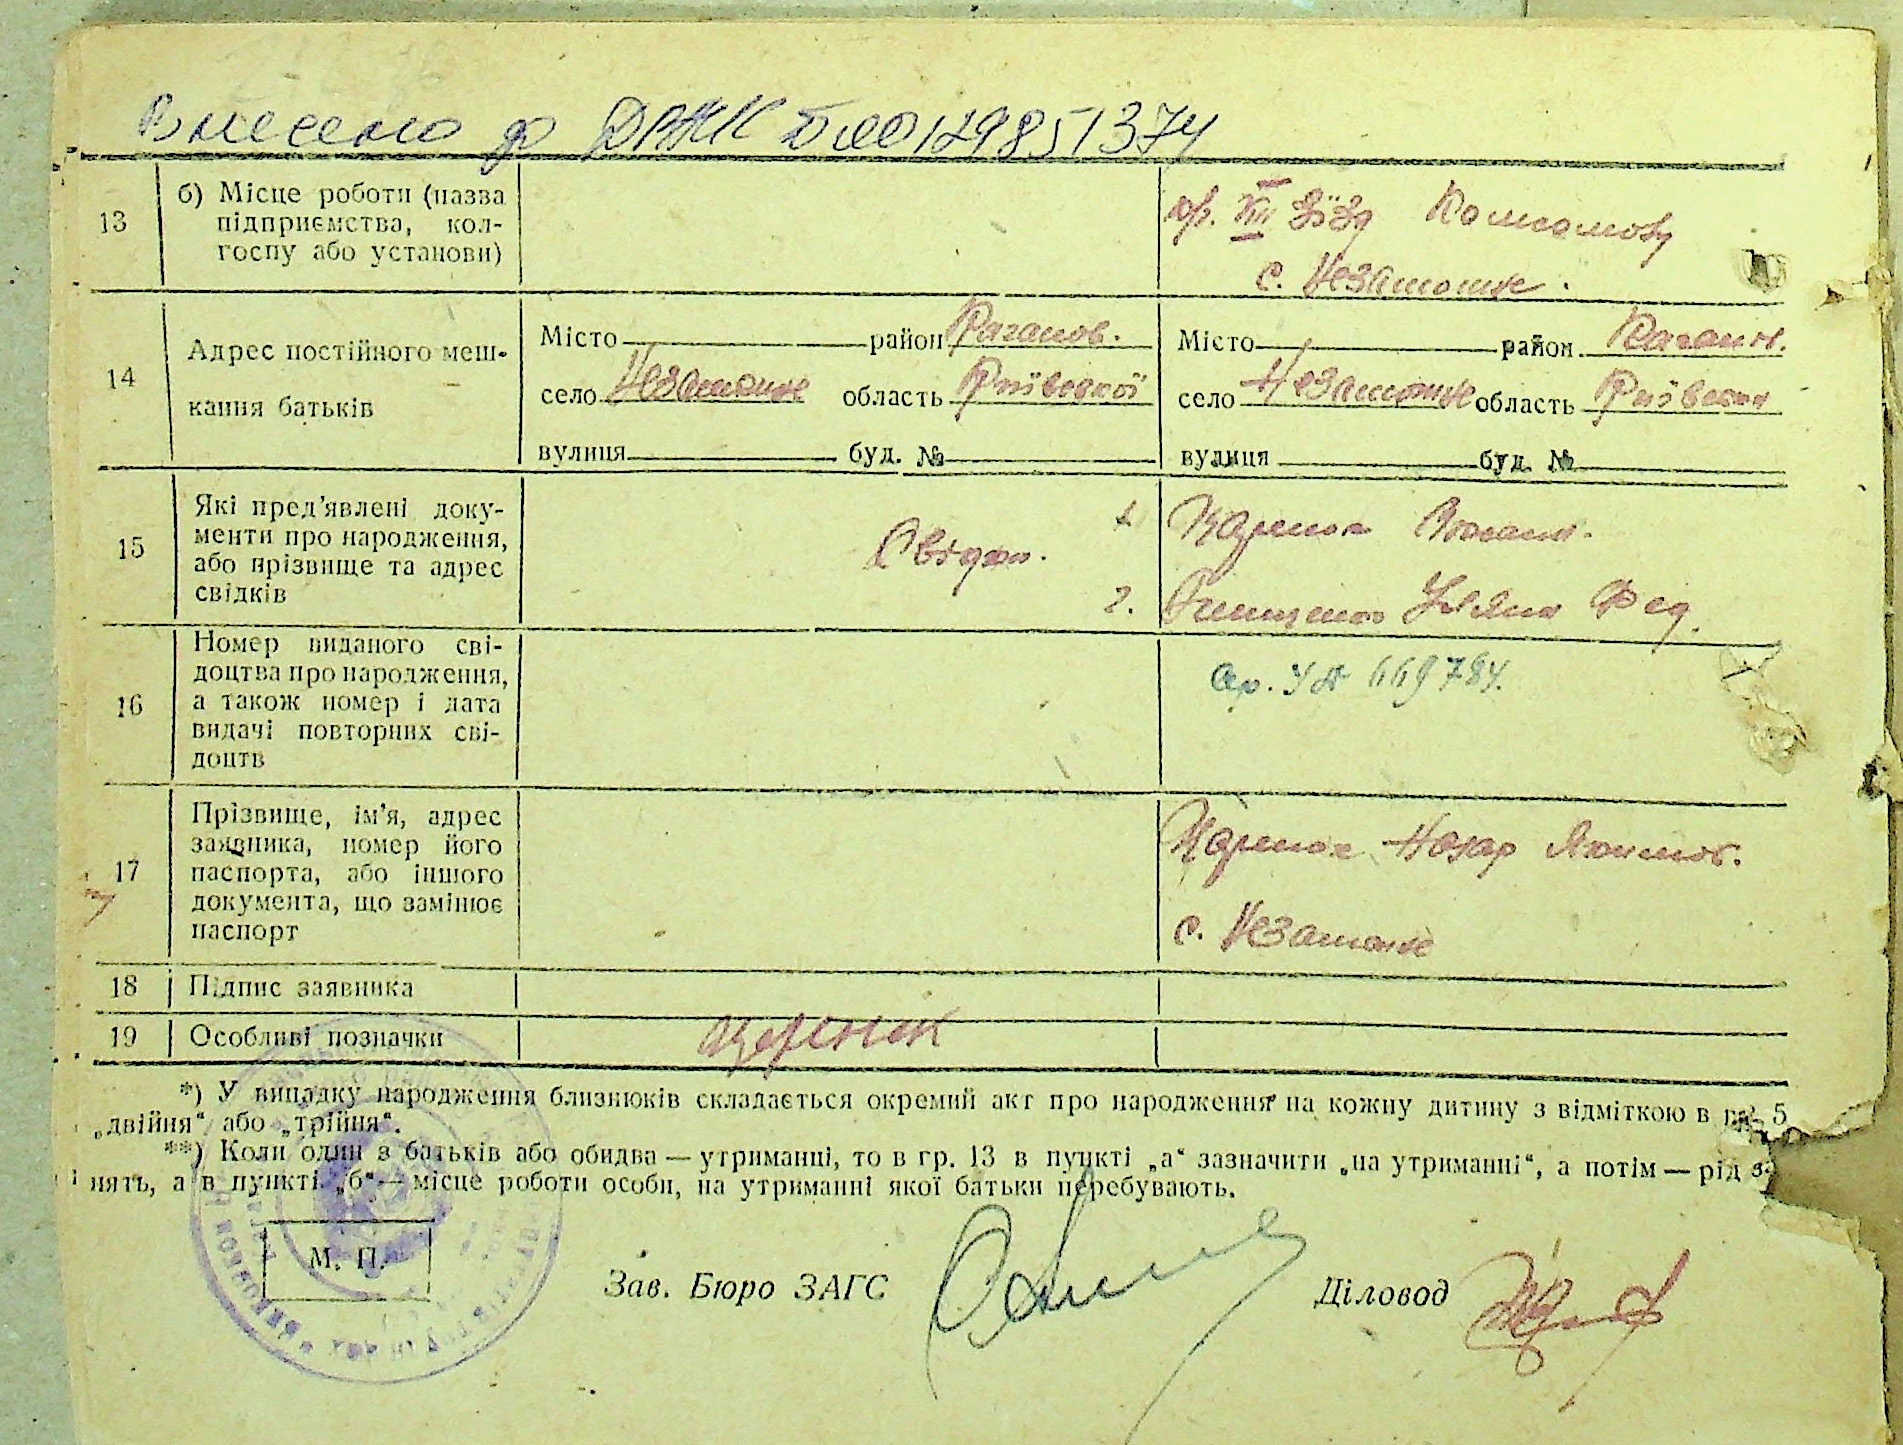 Внесено до 00129851374
13
б) Місце роботи (назва
підприємства, кол-
госпу або установи)
З'їзд Комсомолу
с. Незаможне.
14
Адрес постійного меш-
кання батьків
Місто район Каганов.
село Незаможне область Київської
вулиця буд. №
Місто район Каганов.
село Незаможне область Київська
вулиця буд. №
15
Які пред'явлені доку-
менти про народження,
або прізвище та адрес
свідків
Свідки.
1.
2. Уляна Фед.
16
Номер виданого сві-
доцтва про народження,
а також номер і дата
видачі повторних сві-
доцтв
669784.
17
Прізвище, ім'я, адрес
заявника, номер його
паспорта, або іншого
документа, що замінює
паспорт
Назар Якимов.
с. Незаможне
18
Підпис заявника
19
Особливі позначки
*) У випадку народження близнюків складається окремий акт про народження на кожну дитину з відміткою в 5
„двійня“ або „трійня“.
**) Коли один з батьків або обидва — утриманці, то в гр. 13 в пункті „а“ зазначити „на утриманні“, а потім — рід за-
нять, а в пункті „б“ — місце роботи особи, на утриманні якої батьки перебувають.
М. П.
Зав. Бюро ЗАГС
Діловод